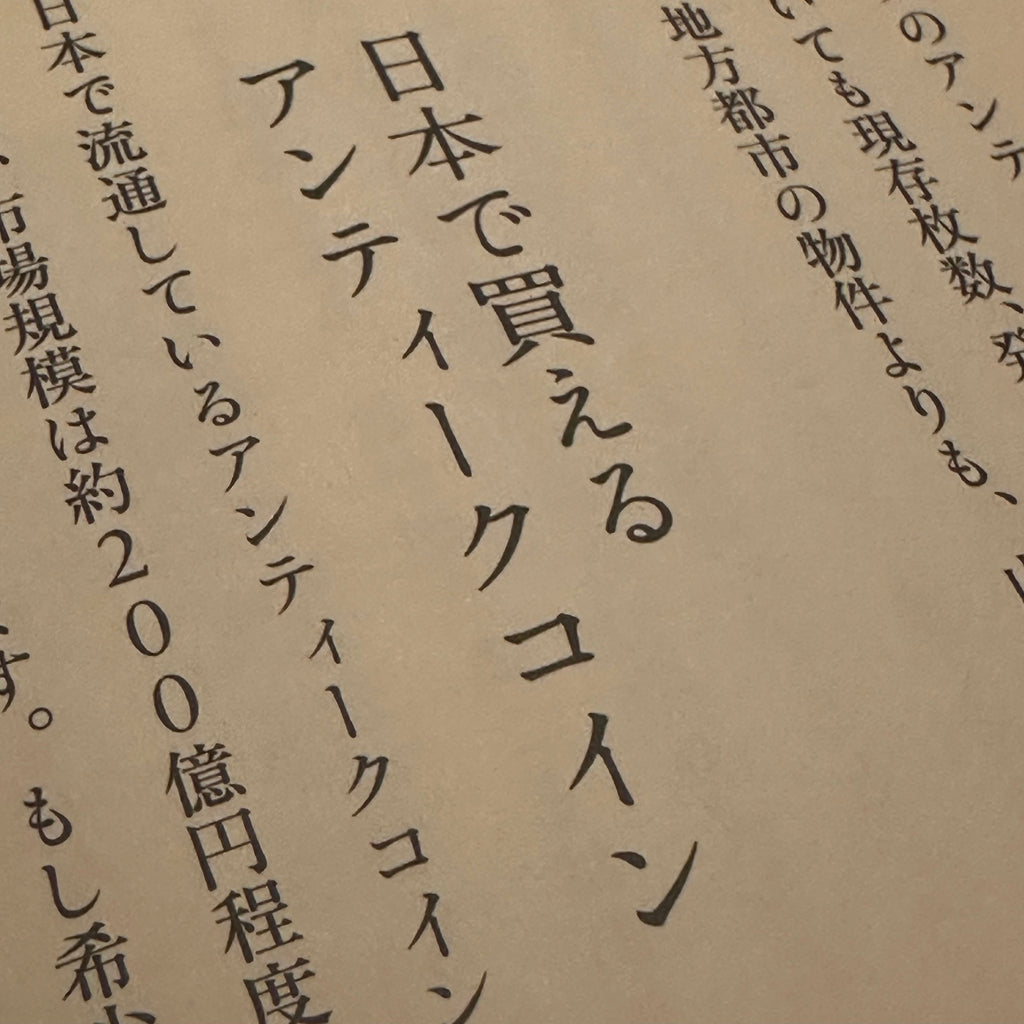 のアンテ
いても現存枚数、発
地方都市の物件よりも、
日本で買える
アンティークコイン
日本で流通しているアンティークコイン
市場規模は約200億円程度
す。もし希少